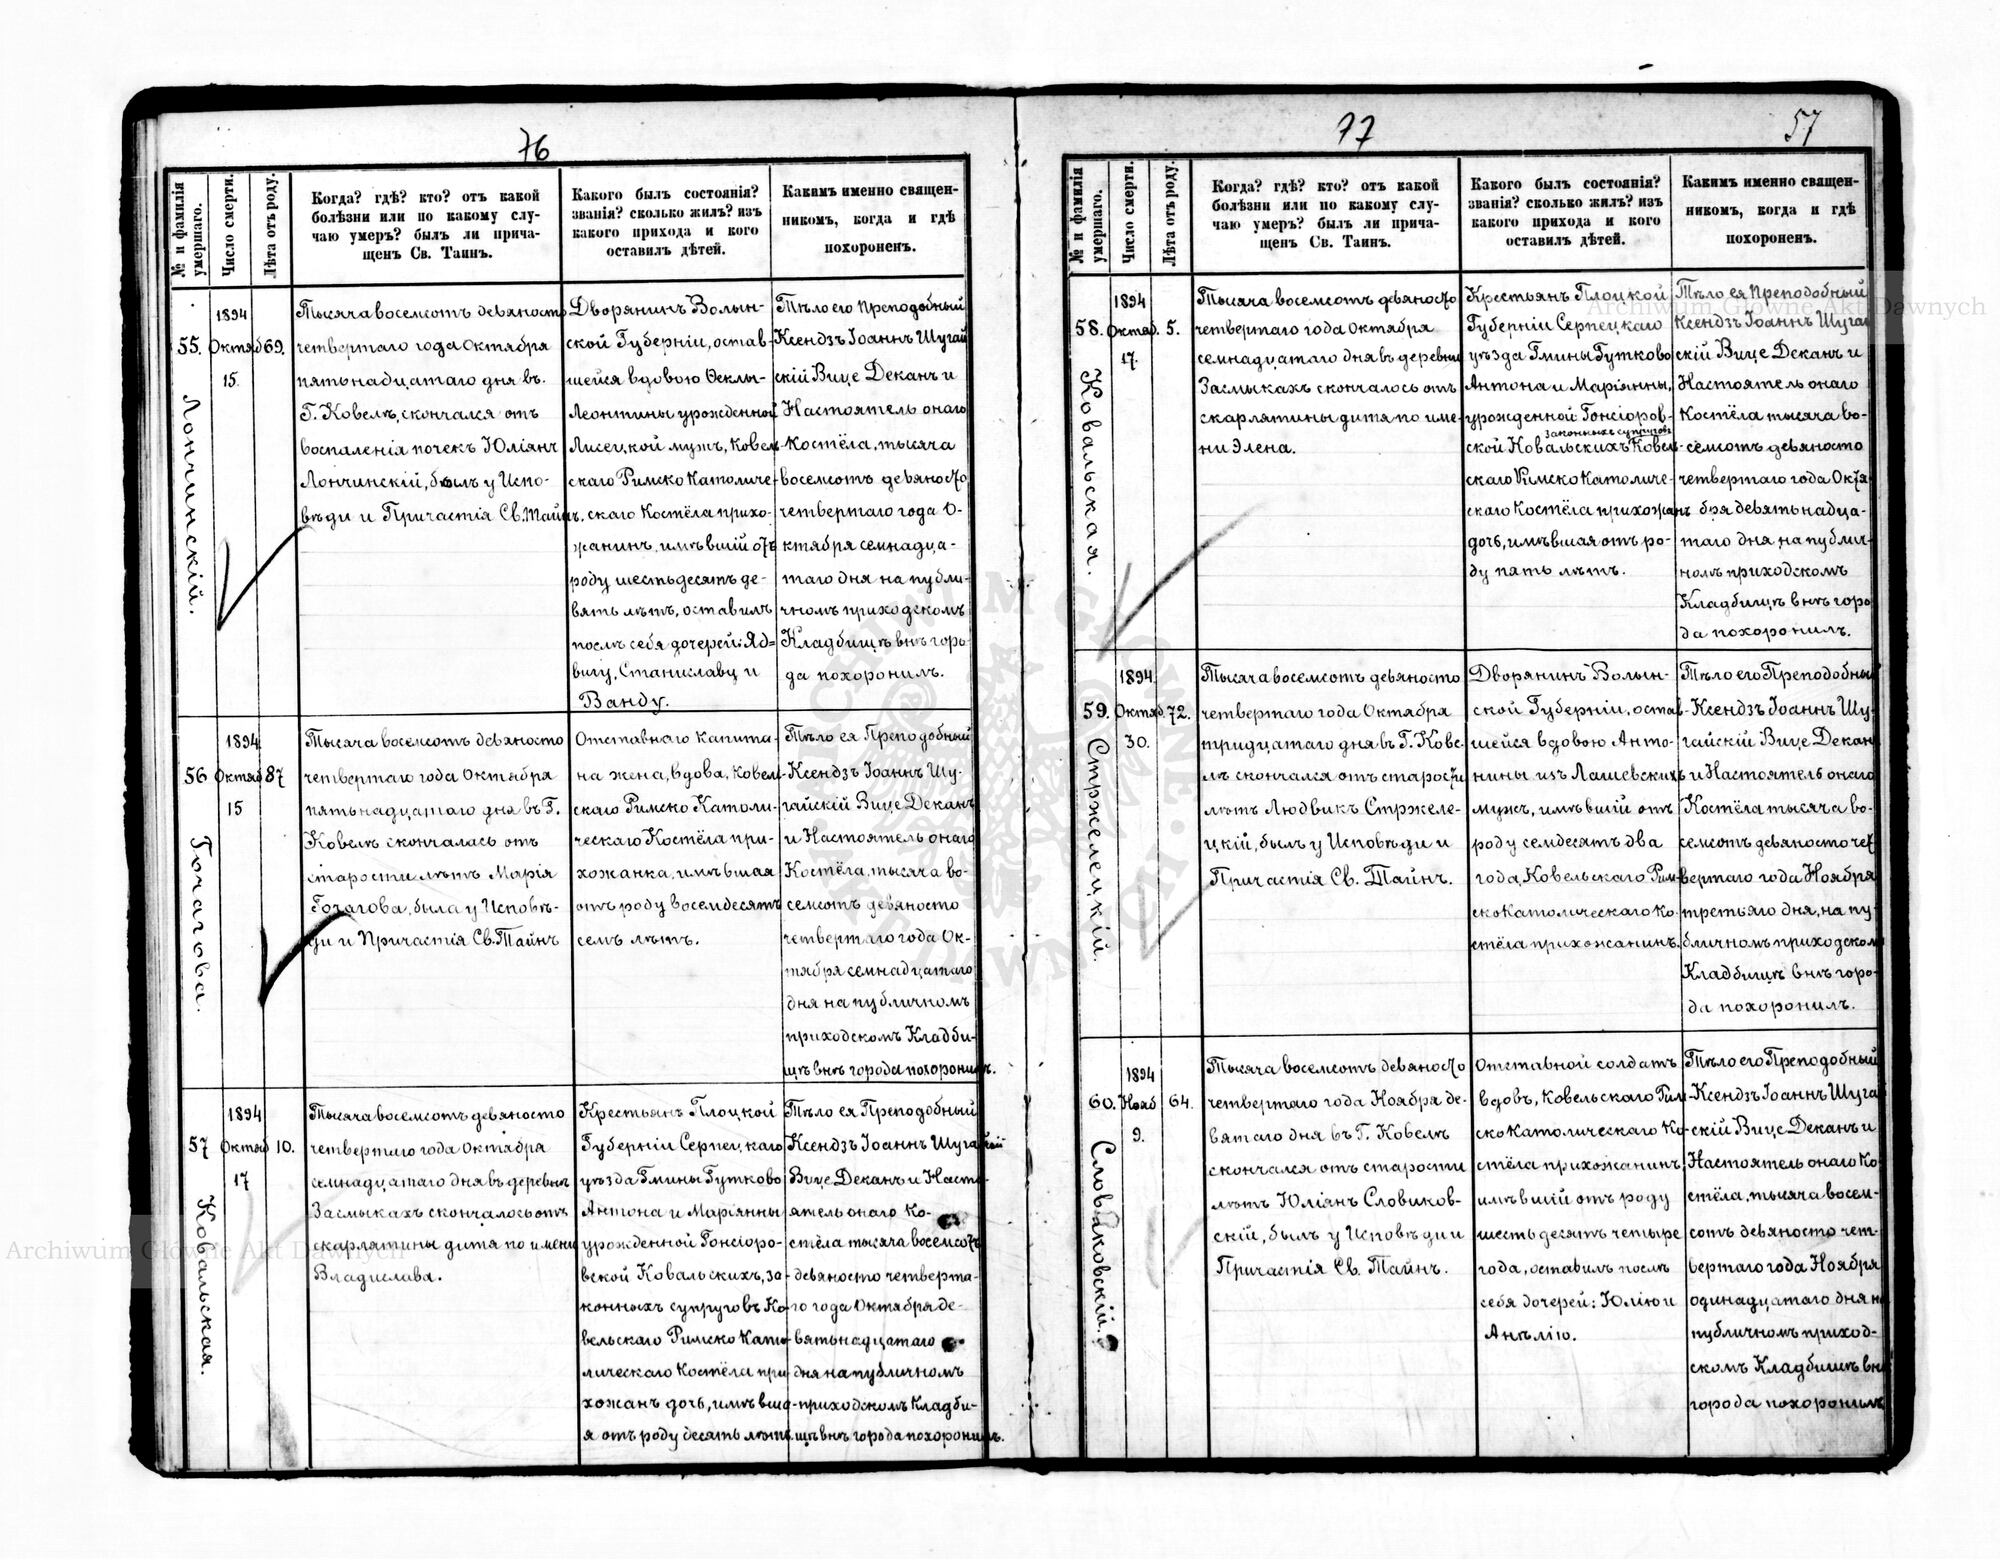 76
№ и фамилія умершаго.
Число смерти.
Лѣта отъ роду.
Когда? гдѣ? кто? отъ какой
болѣзни или по какому слу-
чаю умеръ? былъ ли прича-
щенъ Св. Таинъ.
Какого былъ состоянія?
званія? сколько жилъ? изъ
какого прихода и кого
оставилъ дѣтей.
Какимъ именно священ-
никомъ, когда и гдѣ
похороненъ.
55.
Лончинскій.
1894
Октяб
15.
69.
Тысяча восемсотъ девяносто
четвертаго года Октября
пятьнадцатаго дня въ
Г. Ковелъ, скончался отъ
воспаленія почекъ Юліянъ
Лончинскій, былъ у Испо-
вѣди и Причастія Св. Тайнъ.
Дворянинъ Волын-
ской Губерніи, остав-
шейся вдовою Феклы-
Леонтины урожденной
Лисецкой мужъ, Ковель-
скаго Римско Католиче-
скаго Костёла прихо-
жанинъ, имѣвшій отъ
роду шестьдесятъ де-
вять лѣтъ, оставилъ
послѣ себя дочерей: Яд=
вигу, Станиславу и
Ванду.
Тѣло его Преподобный
Ксендзъ Іоаннъ Шугай
скій Вице Деканъ и
Настоятель онаго
Костёла, тысяча
восемсотъ девяносто
четвертаго года О-
ктября семнадца-
таго дня на публи-
чномъ приходскомъ
Кладбищѣ внѣ горо-
да похоронилъ.
56
Гочагова.
1894
Октяб
15
87
Тысяча восемсотъ девяносто
четвертаго года Октября
пятьнадцатаго дня въ Г.
Ковелѣ скончалась отъ
старости лѣтъ Марія
Гочагова, была у Исповѣ-
ди и Причастія Св. Тайнъ
Отставнаго капита-
на жена, вдова, Ковель-
скаго Римско Католи-
ческаго Костёла при-
хожанка, имѣвшая
отъ роду восемдесятъ
семь лѣтъ.
Тѣло ея Преподобный
Ксендзъ Іоаннъ Шу-
гайскій Вице Деканъ
и Настоятель онаго
Костёла, тысяча во-
семсотъ девяносто
четвертаго года Ок-
тября семнадцатаго
дня на публичномъ
приходскомъ Кладби-
щѣ внѣ города похоронилъ.
57
Ковальская.
1894
Октяб
17
10.
Тысяча восемсотъ девяносто
четвертаго года Октября
семнадцатаго дня въ деревнѣ
Засмыкахъ скончалось отъ
скарлятины дитя по имени
Владислава.
Крестьянъ Плоцкой
Губерніи Серпецкаго
уѣзда Гмины Гутково
Антона и Маріянны
урожденной Гонсіоро-
вской Ковальскихъ, за-
конныхъ супруговъ Ко-
вельскаго Римско Като-
лическаго Костёла при-
хожанъ дочь, имѣвша-
я отъ роду десять лѣтъ.
Тѣло ея Преподобный
Ксендзъ Іоаннъ Шугайскій
Вице Деканъ и Насто-
ятель онаго Ко-
стёла тысяча восемсотъ
девяносто четверта-
го года Октября де-
вятьнадцатаго
дня на публичномъ
приходскомъ Кладби-
щѣ внѣ города похоронилъ.
77
57
№ и фамилія умершаго.
Число смерти.
Лѣта отъ роду.
Когда? гдѣ? кто? отъ какой
болѣзни или по какому слу-
чаю умеръ? былъ ли прича-
щенъ Св. Таинъ.
Какого былъ состоянія?
званія? сколько жилъ? изъ
какого прихода и кого
оставилъ дѣтей.
Какимъ именно священ-
никомъ, когда и гдѣ
похороненъ.
58.
Ковальская.
1894
Октяб.
17.
5.
Тысяча восемсотъ девяносто
четвертаго года Октября
семнадцатаго дня въ деревни
Засмыкахъ скончалось отъ
скарлятины дитя по име-
ни Элена.
Крестьянъ Плоцкой
Губерніи Серпецкаго
уѣзда Гмины Гутково
Антона и Маріянны,
урожденной Гонсіоров-
законныхъ супруговъ
ской Ковальскихъ Ковель-
скаго Римско Католиче-
скаго Костёла прихожанъ
дочь, имѣвшая отъ ро-
ду пять лѣтъ.
Тѣло ея Преподобный
Ксендзъ Іоаннъ Шугай
скій Вице Деканъ и
Настоятель онаго
Костёла тысяча во-
семсотъ девяносто
четвертаго года Октя
бря девятьнадца-
таго дня на публич-
номъ приходскомъ
Кладбищѣ внѣ горо
да похоронилъ.
59.
Стржелецкій.
1894
Октяб.
30.
72.
Тысяча восемсотъ девяносто
четвертаго года Октября
тридцатаго дня въ Г. Кове-
лѣ скончался отъ старости
лѣтъ Людвикъ Стржеле-
цкій, былъ у Исповѣди и
Причастія Св. Тайнъ.
Дворянинъ Волын-
ской Губерніи, остав-
шейся вдовою Анто-
нины изъ Лашевскихъ
мужъ, имѣвшій отъ
роду семдесятъ два
года, Ковельскаго Рим-
ско Католическаго Ко-
стёла прихожанинъ.
Тѣло его Преподобный
Ксендзъ Іоаннъ Шу-
гайскій Вице Декан
и Настоятель онаго
Костёла тысяча во-
семсотъ девяносто чет
вертаго года Ноября
третьяго дня, на пу-
бличномъ приходском
Кладбищѣ внѣ горо-
да похоронилъ.
60.
Словиковскій.
1894
Нояб
9.
64.
Тысяча восемсотъ девяносто
четвертаго года Ноября де-
вятаго дня въ Г. Ковелѣ
скончался отъ старости
лѣтъ Юліанъ Словиков-
скій, былъ у Исповѣди и
Причастія Св. Тайнъ.
Отставной солдатъ
вдовъ, Ковельскаго Рим-
ско Католическаго Ко-
стёла прихожанинъ
имѣвшій отъ роду
шестьдесятъ четыре
года, оставилъ послѣ
себя дочерей: Юлію и
Анѣлію.
Тѣло его Преподобный
Ксендзъ Іоаннъ Шугай
скій Вице Деканъ и
Настоятель онаго Ко
стёла, тысяча восем-
сотъ девяносто чет-
вертаго года Ноября
одинадцатаго дня на
публичномъ приход-
скомъ Кладбищѣ внѣ
города похоронилъ
Archiwum Główne Akt Dawnych
Archiwum Główne Akt Dawnych